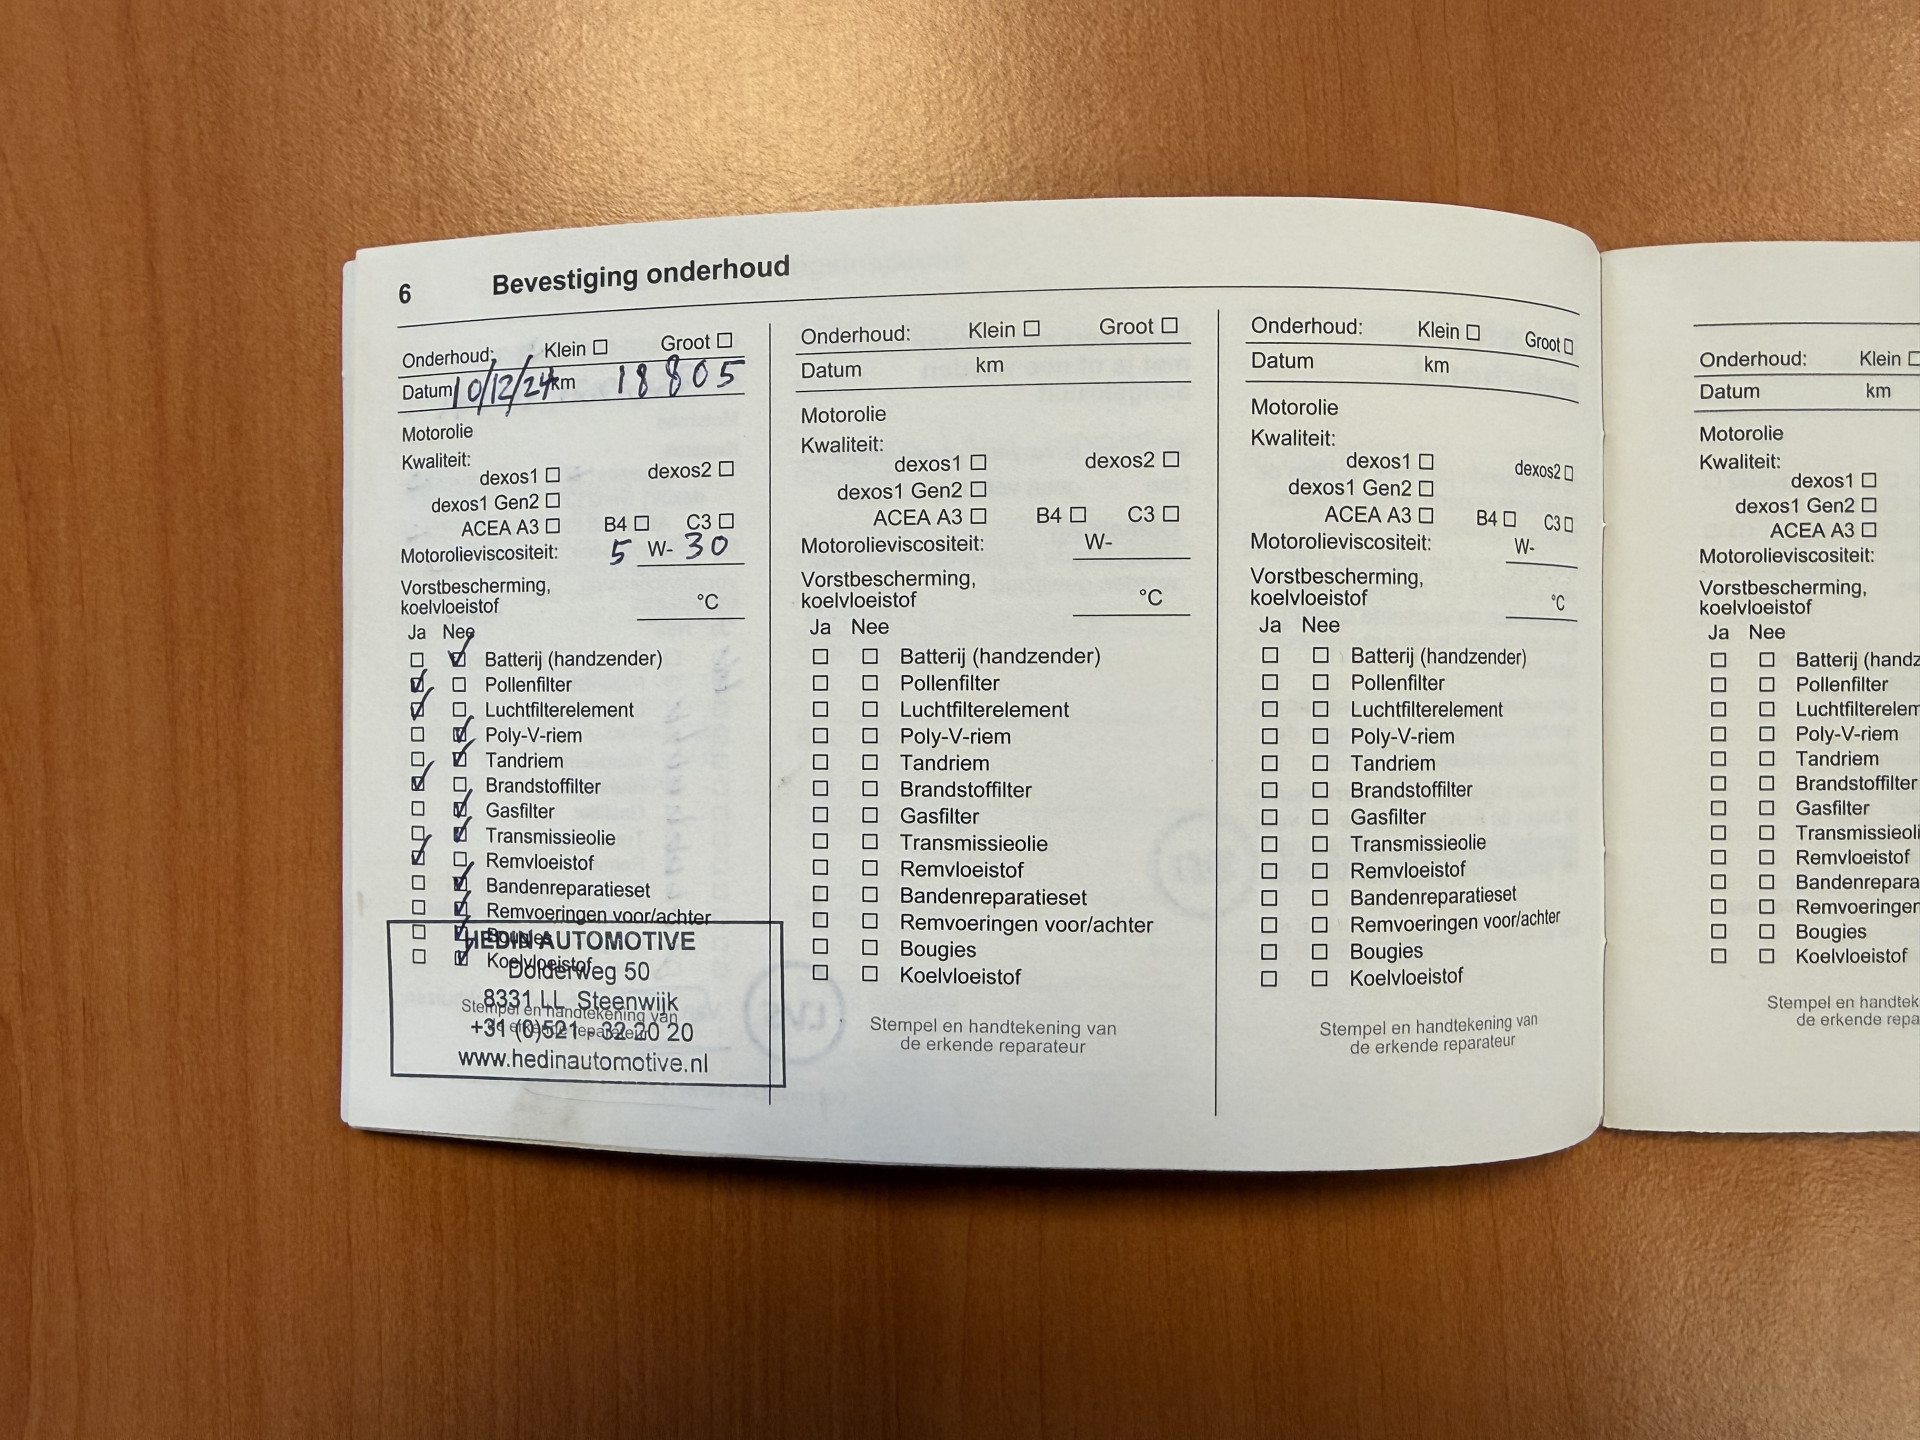 6 Bevestiging onderhoud
Onderhoud: Klein ☐ Groot ☐
Datum 10/12/24 km 18805
Motorolie
Kwaliteit:
dexos1 ☐ dexos2 ☐
dexos1 Gen2 ☐
ACEA A3 ☐ B4 ☐ C3 ☐
Motorolieviscositeit: 5 W- 30
Vorstbescherming,
koelvloeistof °C
Ja Nee
☐ ☑ Batterij (handzender)
☑ ☐ Pollenfilter
☑ ☐ Luchtfilterelement
☐ ☑ Poly-V-riem
☐ ☑ Tandriem
☑ ☐ Brandstoffilter
☐ ☑ Gasfilter
☐ ☑ Transmissieolie
☑ ☐ Remvloeistof
☐ ☑ Bandenreparatieset
☐ ☑ Remvoeringen voor/achter
☐ ☑ Bougies
☐ ☑ Koelvloeistof
Stempel en handtekening van
de erkende reparateur
HEDIN AUTOMOTIVE
Dolderweg 50
8331 LL Steenwijk
+31 (0)521 - 32 20 20
www.hedinautomotive.nl
Onderhoud: Klein ☐ Groot ☐
Datum km
Motorolie
Kwaliteit:
dexos1 ☐ dexos2 ☐
dexos1 Gen2 ☐
ACEA A3 ☐ B4 ☐ C3 ☐
Motorolieviscositeit: W-
Vorstbescherming,
koelvloeistof °C
Ja Nee
☐ ☐ Batterij (handzender)
☐ ☐ Pollenfilter
☐ ☐ Luchtfilterelement
☐ ☐ Poly-V-riem
☐ ☐ Tandriem
☐ ☐ Brandstoffilter
☐ ☐ Gasfilter
☐ ☐ Transmissieolie
☐ ☐ Remvloeistof
☐ ☐ Bandenreparatieset
☐ ☐ Remvoeringen voor/achter
☐ ☐ Bougies
☐ ☐ Koelvloeistof
Stempel en handtekening van
de erkende reparateur
Onderhoud: Klein ☐ Groot ☐
Datum km
Motorolie
Kwaliteit:
dexos1 ☐ dexos2 ☐
dexos1 Gen2 ☐
ACEA A3 ☐ B4 ☐ C3 ☐
Motorolieviscositeit: W-
Vorstbescherming,
koelvloeistof °C
Ja Nee
☐ ☐ Batterij (handzender)
☐ ☐ Pollenfilter
☐ ☐ Luchtfilterelement
☐ ☐ Poly-V-riem
☐ ☐ Tandriem
☐ ☐ Brandstoffilter
☐ ☐ Gasfilter
☐ ☐ Transmissieolie
☐ ☐ Remvloeistof
☐ ☐ Bandenreparatieset
☐ ☐ Remvoeringen voor/achter
☐ ☐ Bougies
☐ ☐ Koelvloeistof
Stempel en handtekening van
de erkende reparateur
Onderhoud: Klein ☐
Datum km
Motorolie
Kwaliteit:
dexos1 ☐
dexos1 Gen2 ☐
ACEA A3 ☐
Motorolieviscositeit:
Vorstbescherming,
koelvloeistof
Ja Nee
☐ ☐ Batterij (handz
☐ ☐ Pollenfilter
☐ ☐ Luchtfilterelem
☐ ☐ Poly-V-riem
☐ ☐ Tandriem
☐ ☐ Brandstoffilter
☐ ☐ Gasfilter
☐ ☐ Transmissieoli
☐ ☐ Remvloeistof
☐ ☐ Bandenrepara
☐ ☐ Remvoeringen
☐ ☐ Bougies
☐ ☐ Koelvloeistof
Stempel en handtek
de erkende repa